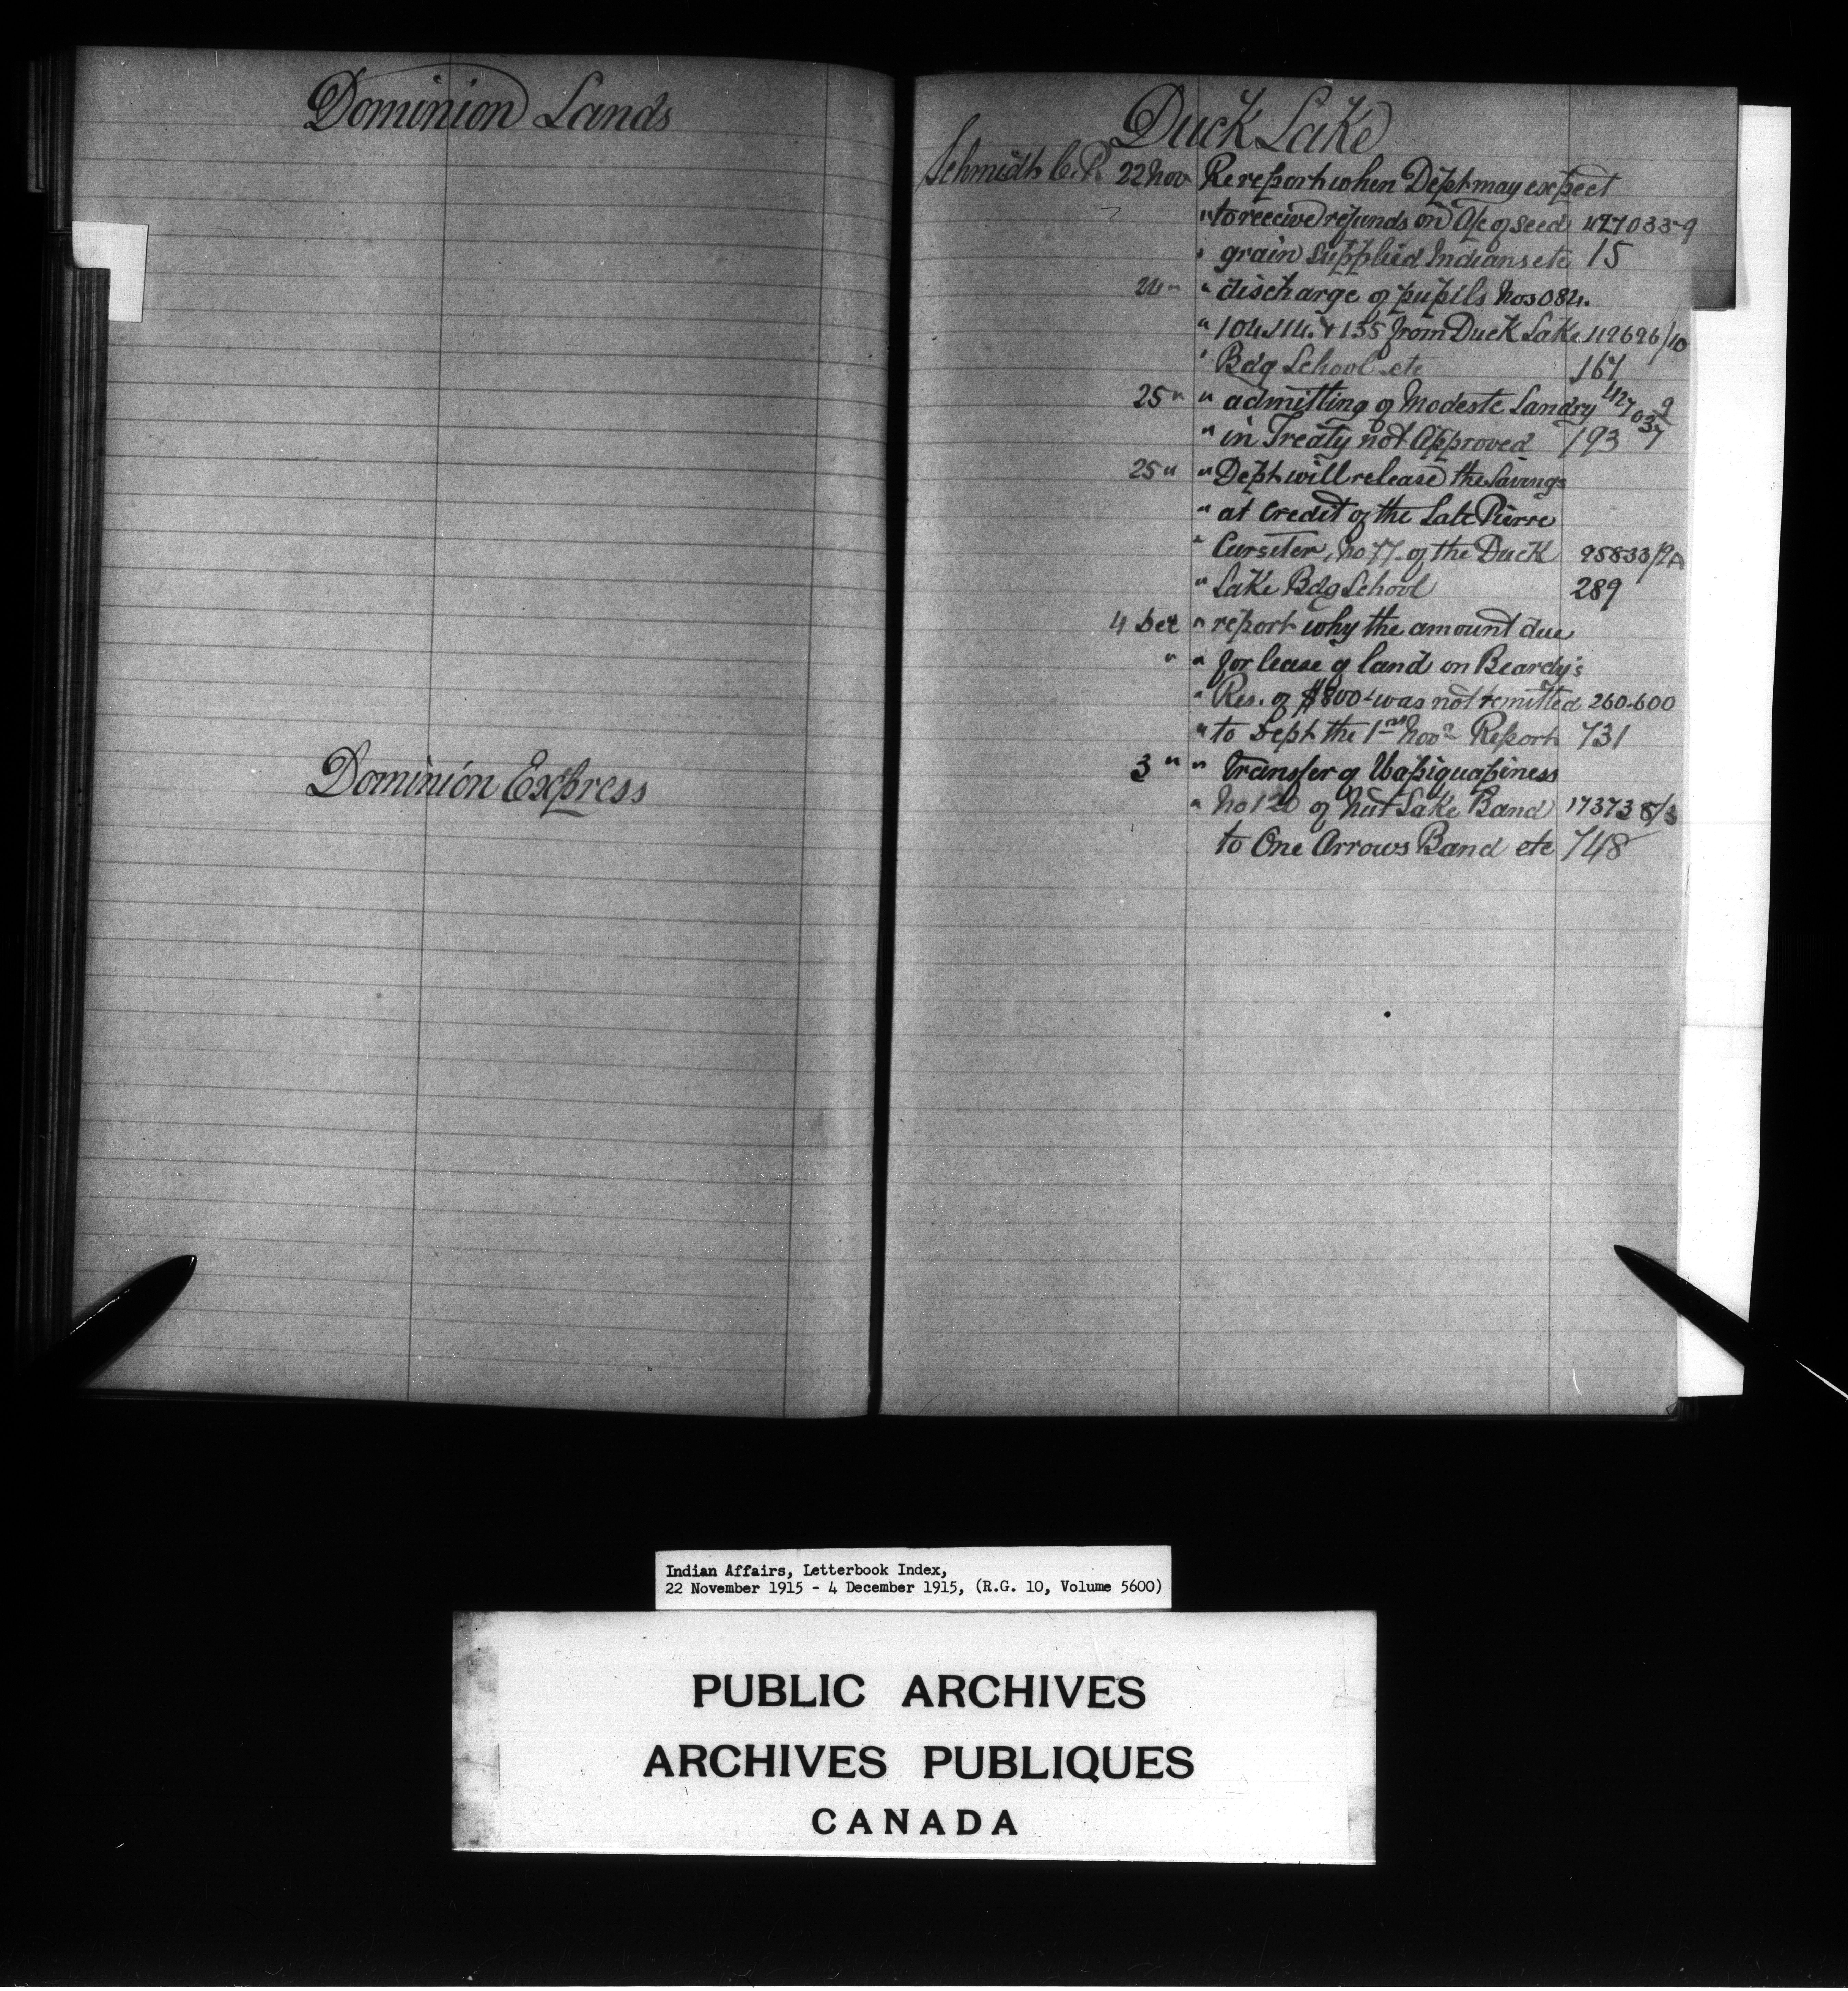 Dominion Lands
Dominion Express
Duck Lake
Schmidt C.P. 22 Nov Re report when Dept may expect
" to receive refunds on A/c of seed 427033-9
" grain supplied Indians etc 15
24 " " discharge of pupils Nos 084.
" 104. 114. & 135 from Duck Lake 119696/10
" Bdg School etc 167
25 " " admitting of Modeste Landry 427037 9
" in Treaty not Approved 193
25 " " Dept will release the Savings
" at Credit of the Late Pierre
" Cursiter, No 77. of the Duck 95833/9A
" Lake Bdg School 289
4 Dec " report why the amount due
" " for lease of land on Beardy's
" Res. of $800- was not remitted 260-600
" to Dept the 1st Nov. Report 731
3 " " Transfer of Wapiquapiness
" No 120 of Nut Lake Band 173738/3
to One Arrows Band etc 748
Indian Affairs, Letterbook Index,
22 November 1915 - 4 December 1915, (R.G. 10, Volume 5600)
PUBLIC ARCHIVES
ARCHIVES PUBLIQUES
CANADA